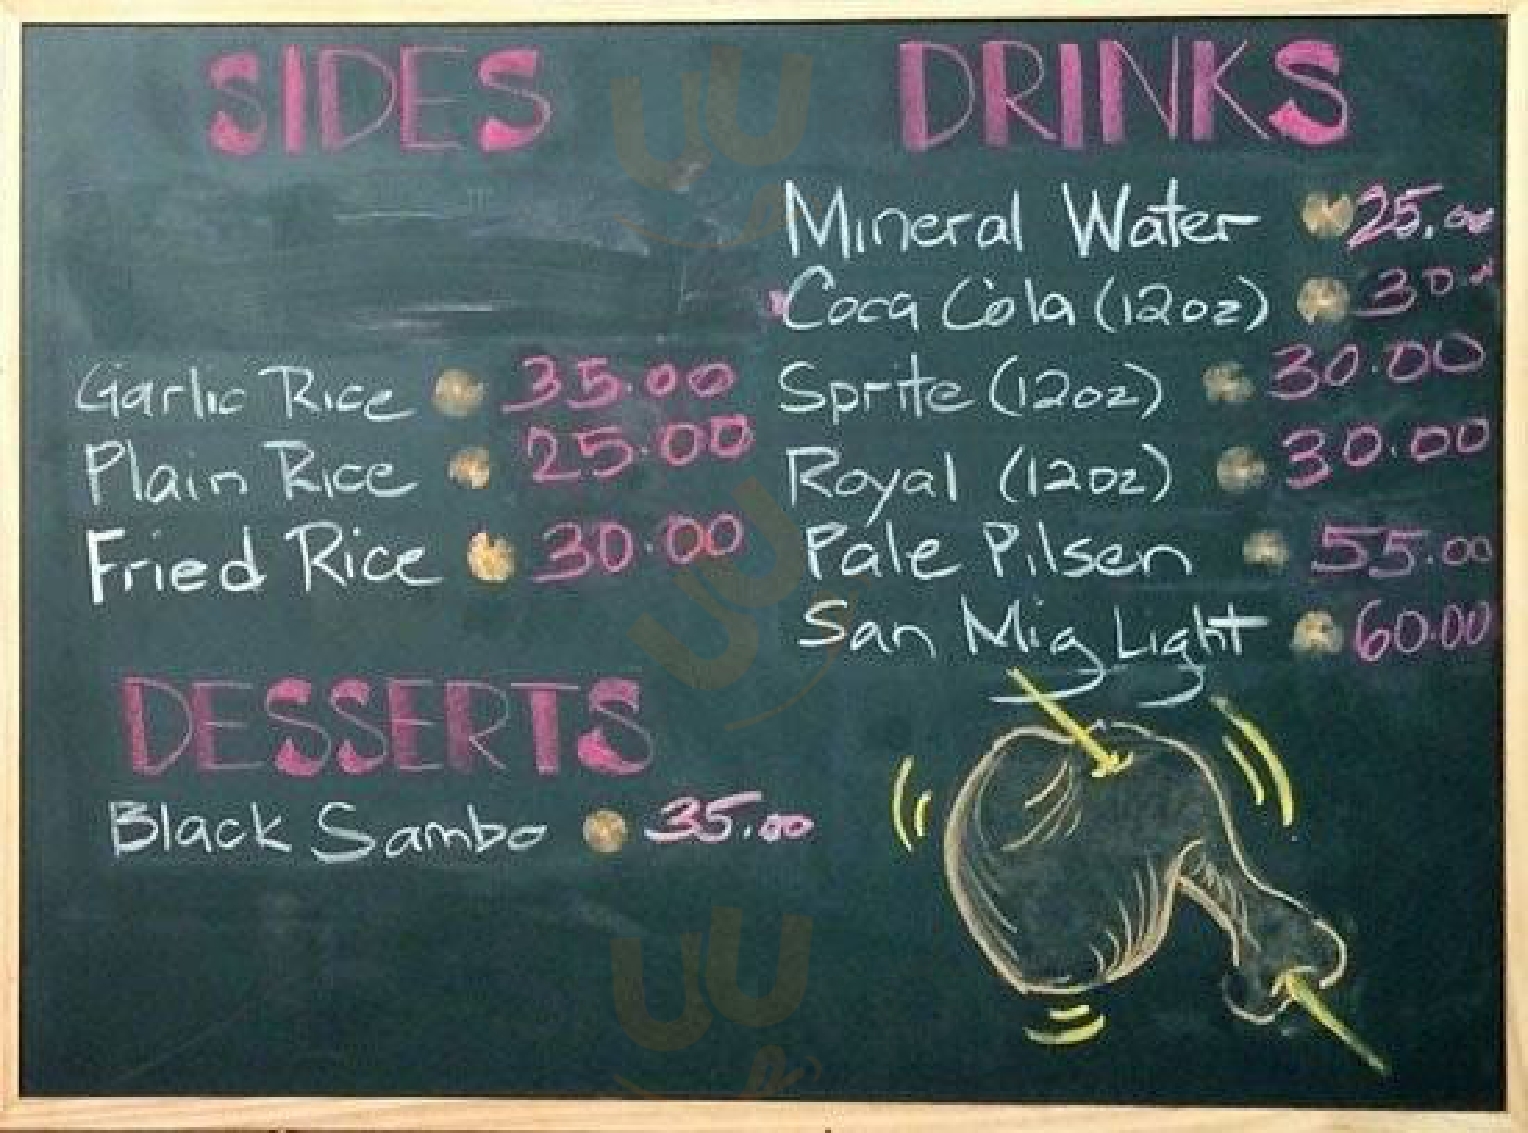 SIDES
Garlic Rice 35.00
Plain Rice 25.00
Fried Rice 30.00
DESSERTS
Black Sambo 35.00
DRINKS
Mineral Water 25.00
Coca Cola (12oz) 30.00
Sprite (12oz) 30.00
Royal (12oz) 30.00
Pale Pilsen 55.00
San Mig Light 60.00